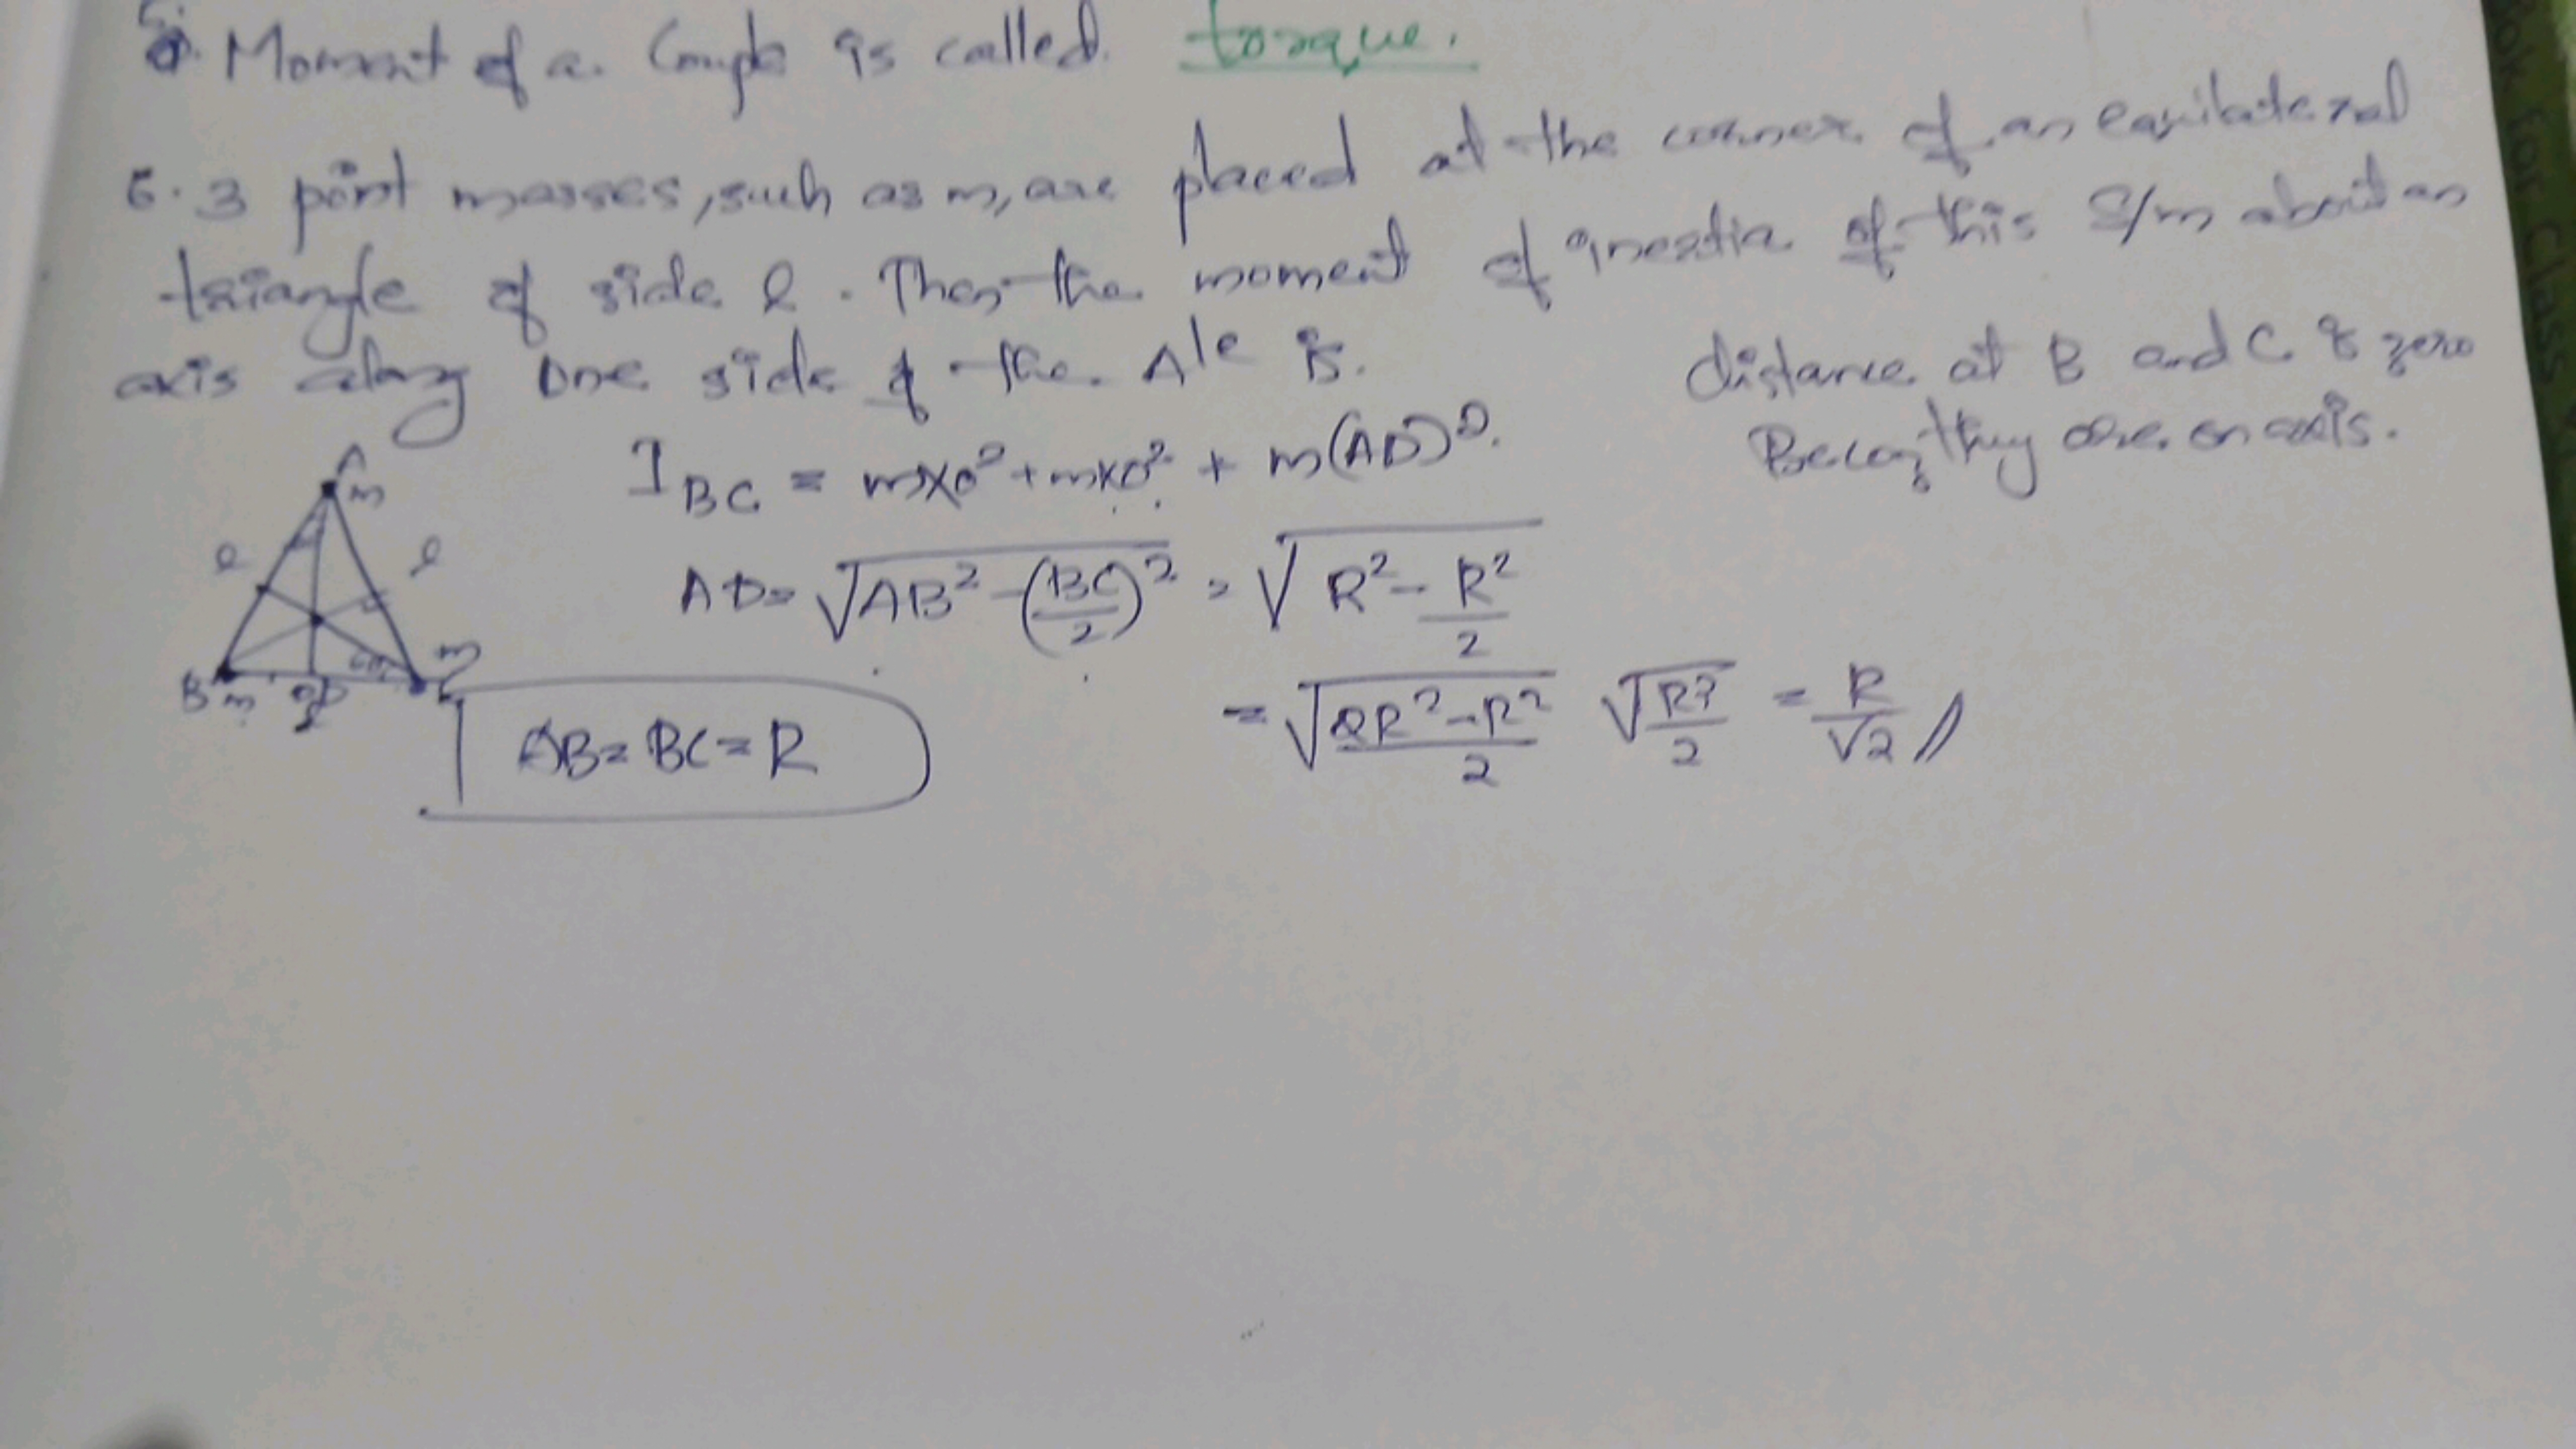 5. Moment of a Couple is called torque.
6. 3 point masses, such as m, are placed at the corner of an equilateral
triangle of side l. Then the moment of inertia of this S/m about an
axis along one side of the Δle is.
distance at B and C is zero
they are on axis.
I BC = m×0² + m×0² + m(AD)².
AD = √AB² - (BC/2)² = √R² - R²/2
= √2R² - R²/2 √R²/2 = R/√2 //
AB = BC = R
A
m
l l
m
B m D